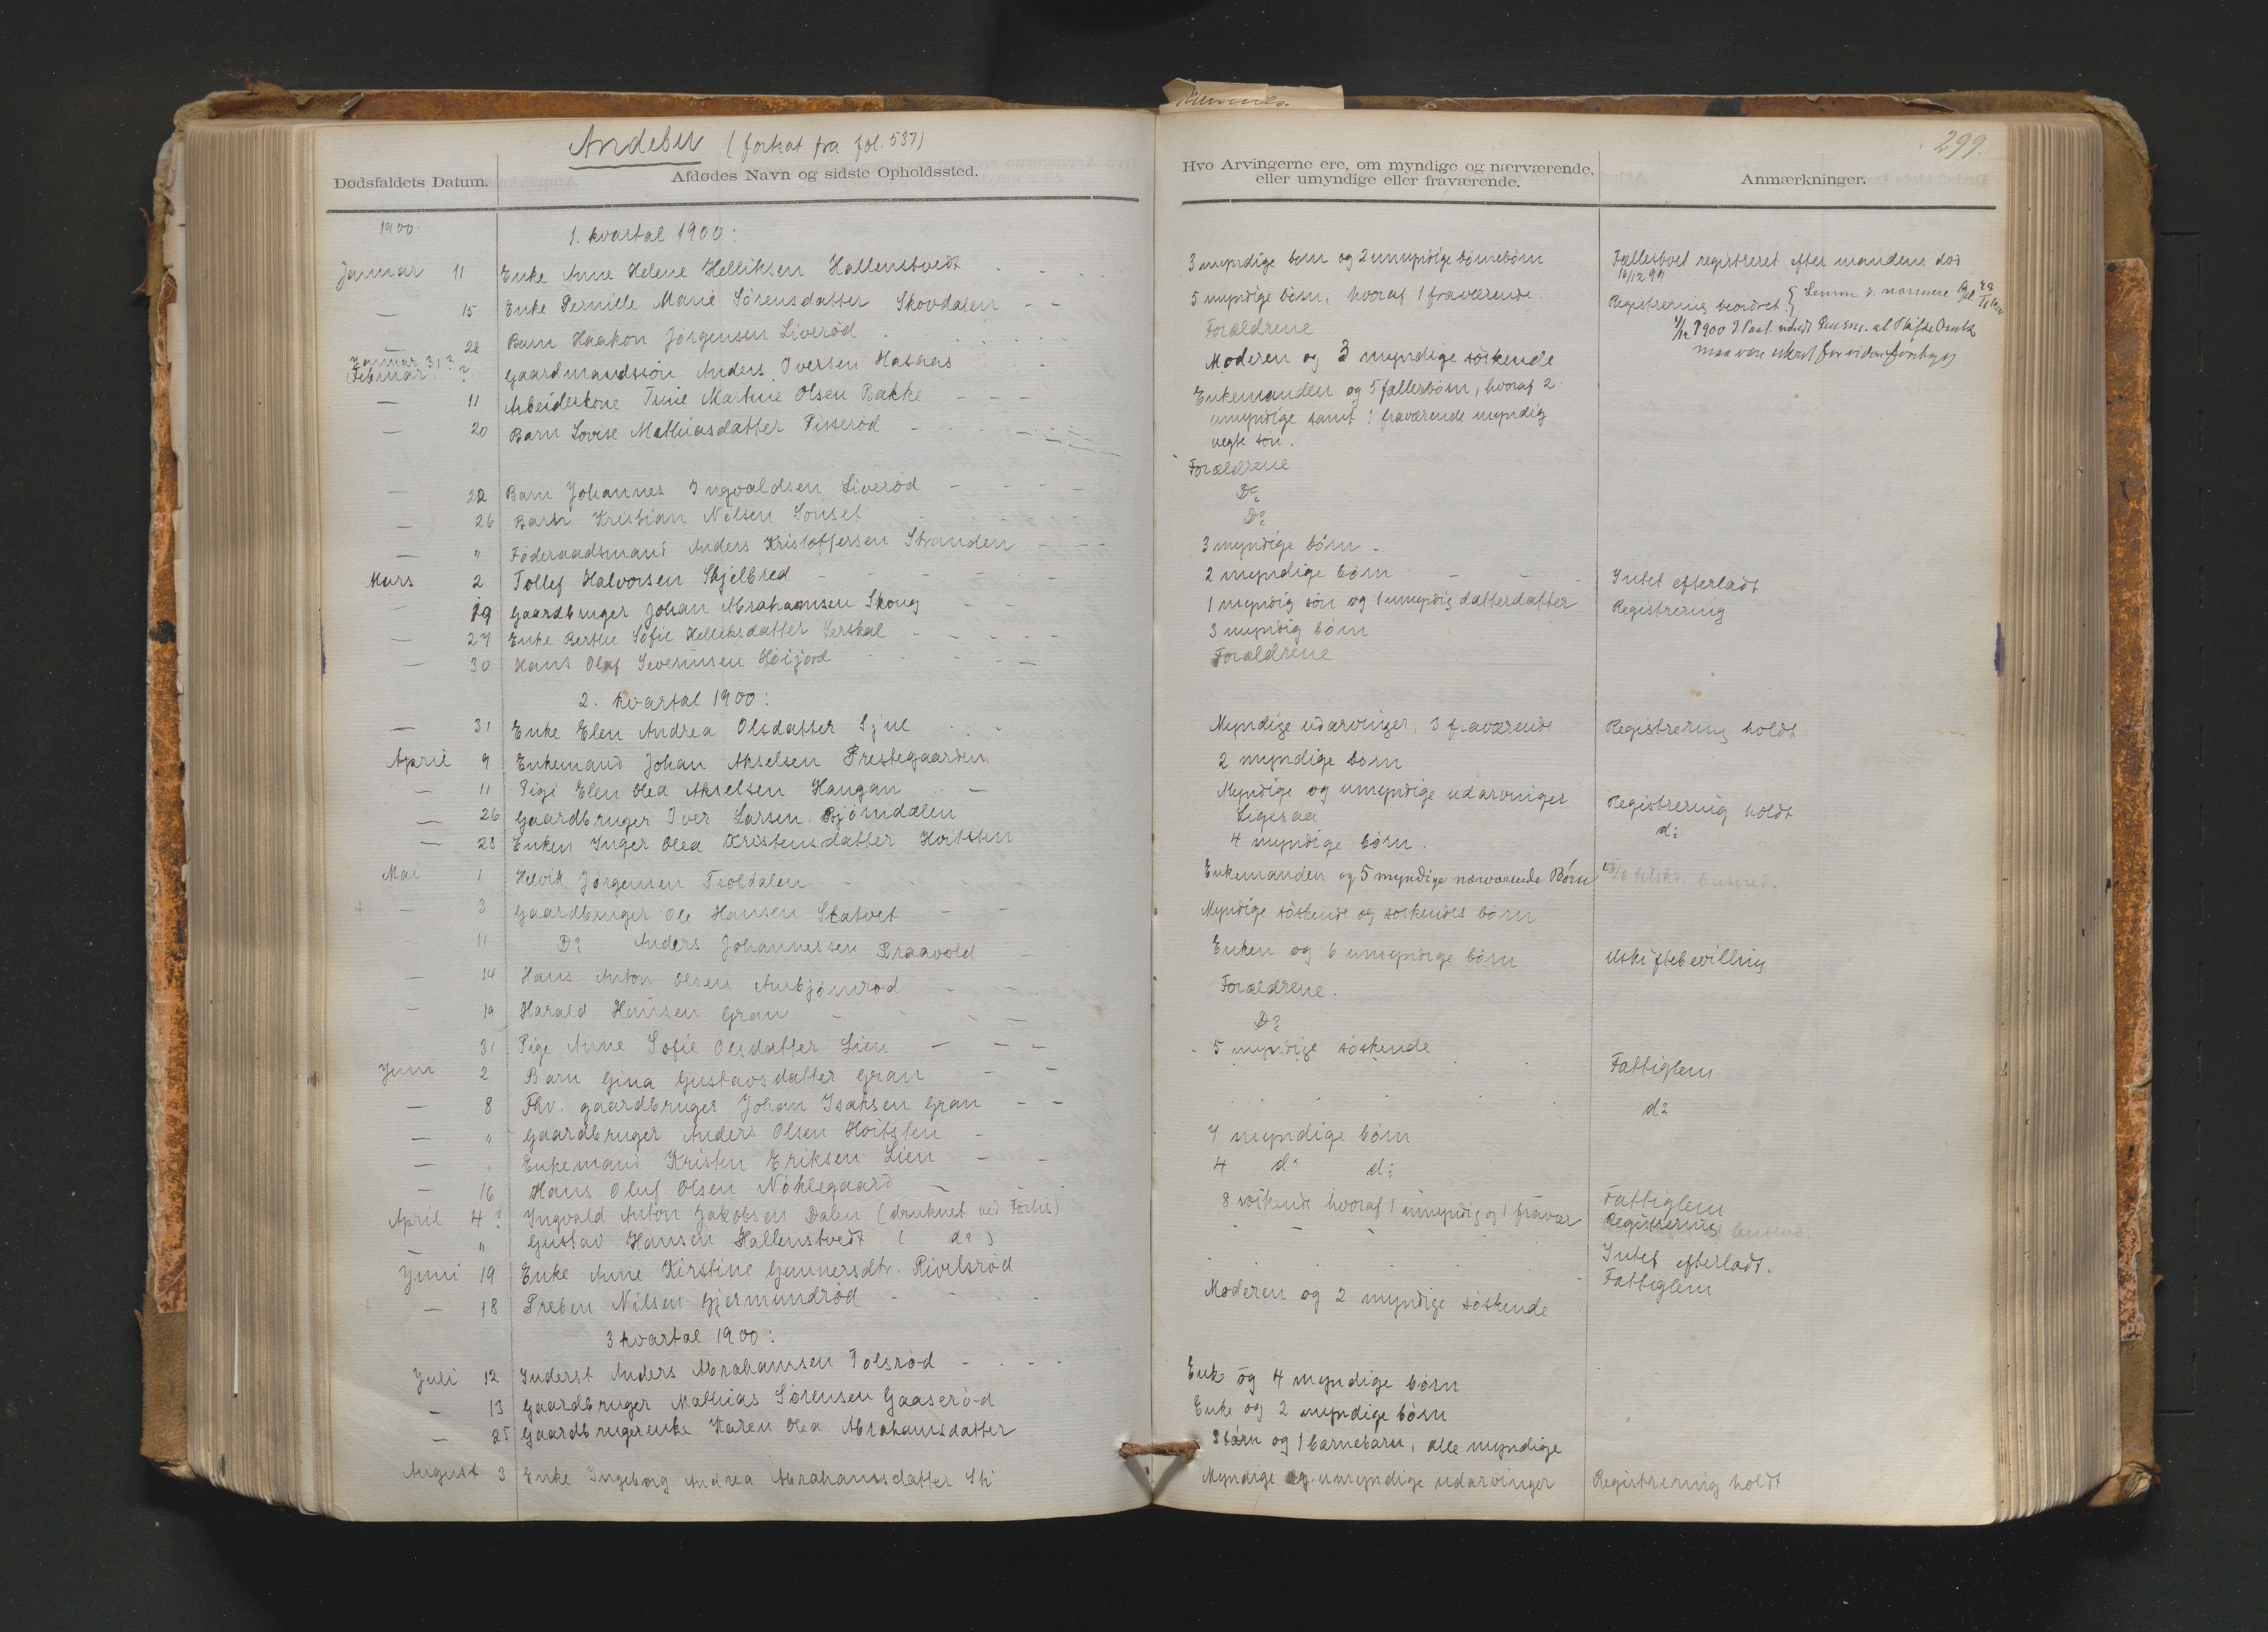 Andebu (fortsat fra fol. 537)
Dødsfaldets Datum.
Afdødes Navn og sidste Opholdssted.
1900
1. kvartal 1900:
Januar 11 Enke Anne Helene Helliksen Hallenstvedt
— 15 Enke Pernille Marie Sørensdatter Skovdalen
— 28 Barn Haakon Jørgensen Liverød
Januar 31?
Februar ? Gaardmandssøn Anders Iversen Hasaas
— 11 Arbeiderkone Trine Martine Olsen Bakke
— 20 Barn Lovise Mathiasdatter Pisserød
— 22 Barn Johannes Ingvaldsen Liverød
— 26 Barn Kristian Nilsen Sønset
— " Føderaadsmand Anders Kristoffersen Stranden
Mars 2 Tollef Halvorsen Skjelbred
— 19 Gaardbruger Johan Abrahamsen Skoug
— 27 Enke Berthe Sofie Helliksdatter
— 30 Hans Olaf Severinsen Høijord
2. kvartal 1900:
— 31 Enke Elen Andrea Olsdatter Sjue
April 9 Enkemand Johan Akselsen Prestegaarden
— 11 Pige Elen Olea Akselsen Haugan
— 26 Gaardbruger Iver Larsen Bjørndalen
— 28 Enken Inger Olea Kristensdatter Hvitsten
Mai 1 Helvik Jørgensen Troldalen
— 3 Gaardbruger Ole Hansen Skatvet
— 11 Do Anders Johannessen Praavold
— 14 Hans Anton Olsen Anbjørnrød
— 19 Harald Hansen Gran
31 Pige Anne Sofie Olsdatter Lien
Juni 2 Barn Gina Gustavsdatter Gran
— 8 Fhv. gaardbruger Johan Isaksen Gran
— " Gaardbruger Anders Olsen Hvitsten
— Enkemand Kristen Eriksen Lien
— 16 Hans Oluf Olsen Nøklegaard
April 4? Ingvald Anton Jakobsen Dalen (druknet ved Forlis)
— " Gustav Hansen Hallenstvedt ( do )
Juni 19 Enke Anne Kirstine Gunnersdtr. Rivelsrød
— 18 Preben Nilsen Gjermundrød
3 kvartal 1900:
Juli 12 Inderst Anders Abrahamsen Tolsrød
— 13 Gaardbruger Mathias Sørensen Gaaserød
— 25 Gaardbrugerenke Karen Olea Abrahamsdatter
August 3 Enke Ingeborg Andrea Abrahamsdatter Ski
299.
Hvo Arvingerne ere, om myndige og nærværende,
eller umyndige eller fraværende.
Anmærkninger.
3 myndige børn og 2 umyndige børnebørn
Fællesboet registreret efter mandens død
16/12 99
5 myndige børn, hvoraf 1 fraværende.
Registrering beordret
Forældrene
Moderen og 3 myndige søskende
Enkemanden og 5 fællesbørn, hvoraf 2
umyndige samt 1 fraværende myndig
uegte søn.
Forældrene
Do
Do
3 myndige børn
2 myndige børn
Intet efterladt
1 myndig søn og 1 umyndig datterdatter
Registrering
3 myndig børn
Forældrene
Myndige udarvinger, 3 fraværende
Registrering holdt
2 myndige børn
Myndige og umyndige udarvinger
Registrering holdt
Ligesaa
do
4 myndige børn.
Enkemanden og 5 myndige nærværende Børn
Myndige søskende og søskendes børn
Enken og 6 umyndige børn
Uskiftebevilling
Forældrene.
Do
5 myndige søskende
Fattiglem
do
7 myndige børn
4 do do
Fattiglem
8 søskende hvoraf 1 umyndig og 1 fravær
Registrering
Intet efterladt.
Fattiglem
Moderen og 2 myndige søskende
Enke og 4 myndige børn
Enke og 2 myndige børn
3 børn og 1 barnebarn, alle myndige
Myndige og umyndige udarvinger
Registrering holdt